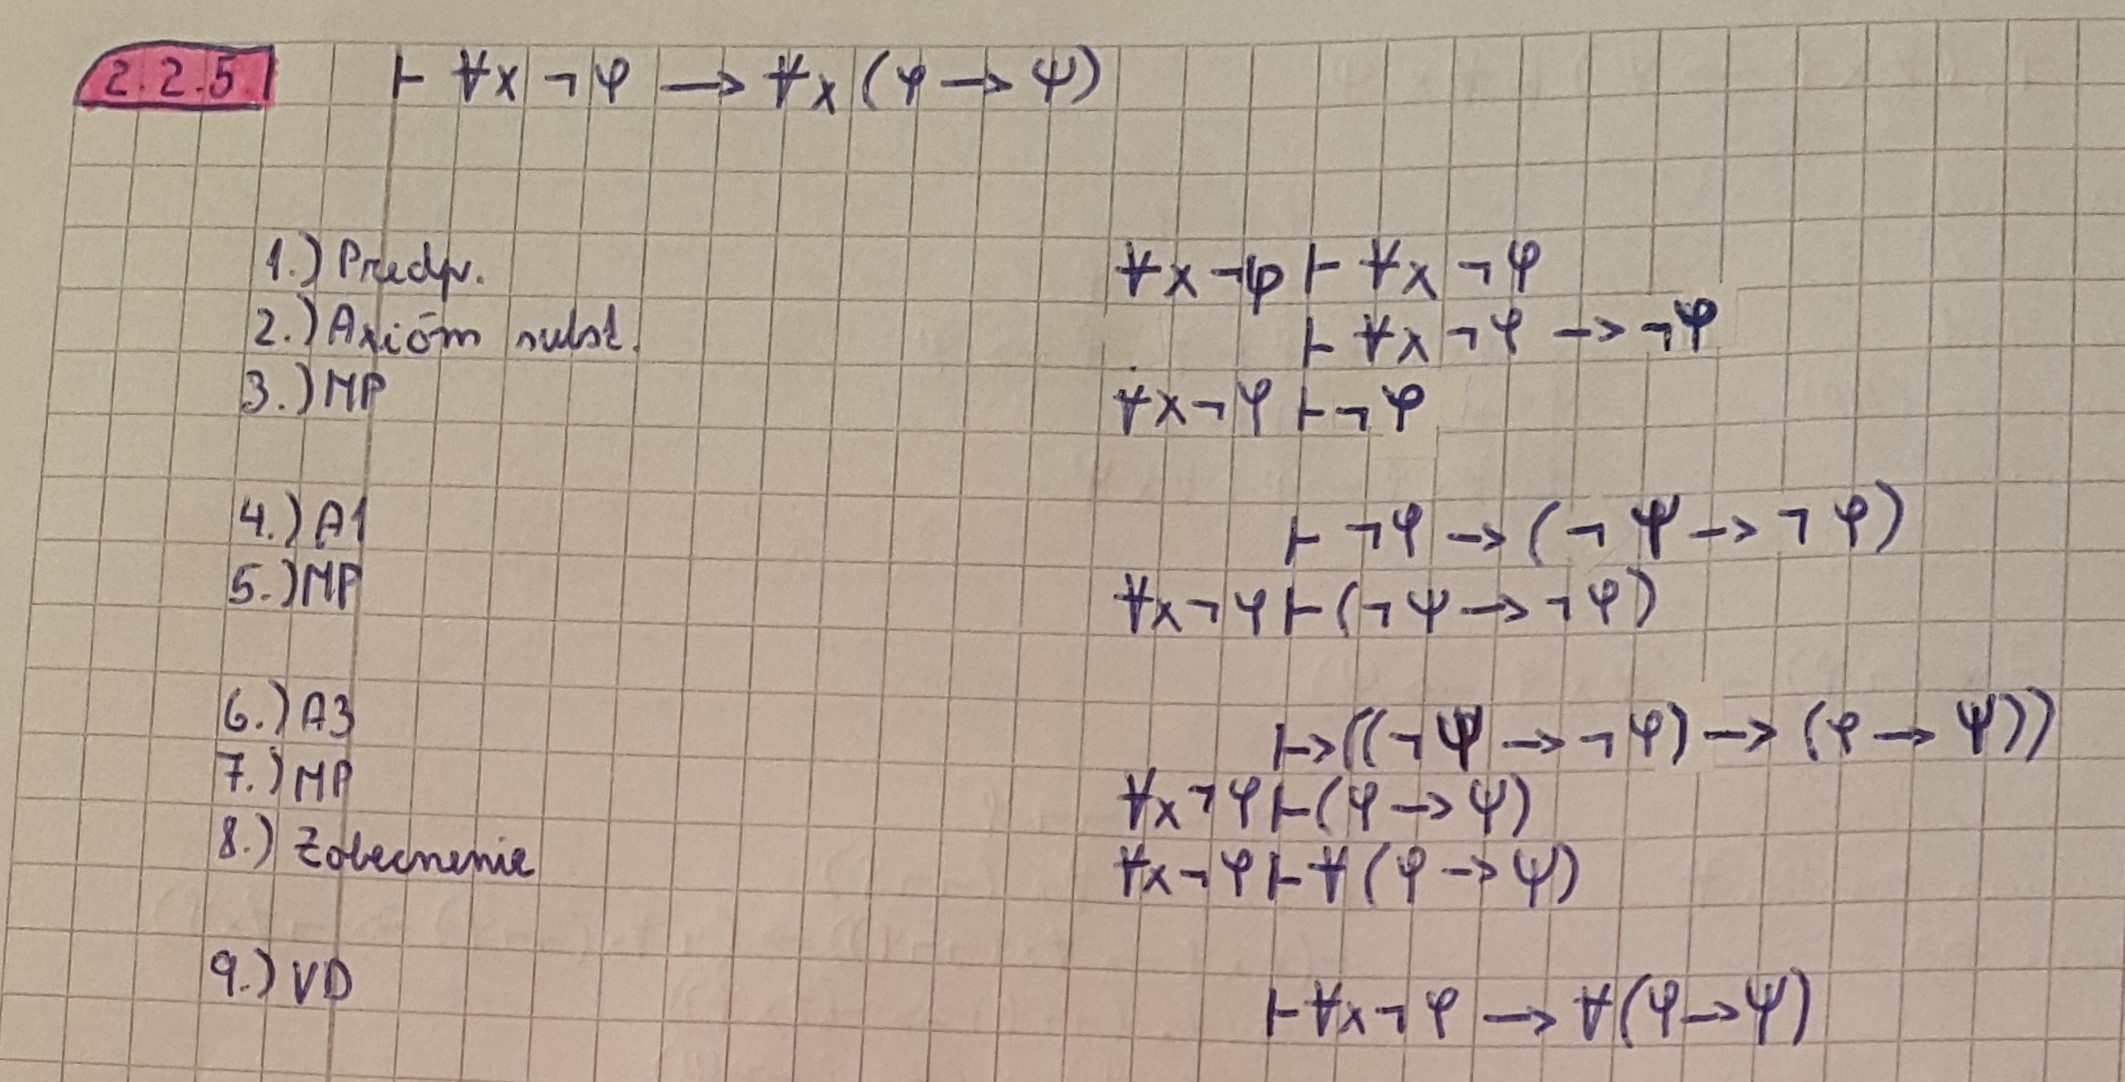 2.2.5 ⊢ ∀x ¬φ → ∀x (φ → ψ)
1.) Predp. ∀x ¬φ ⊢ ∀x ¬φ
2.) Axióm subst. ⊢ ∀x ¬φ → ¬φ
3.) MP ∀x ¬φ ⊢ ¬φ
4.) A1 ⊢ ¬φ → (¬ψ → ¬φ)
5.) MP ∀x ¬φ ⊢ (¬ψ → ¬φ)
6.) A3 ⊢> ((¬ψ → ¬φ) → (φ → ψ))
7.) MP ∀x ¬φ ⊢ (φ → ψ)
8.) Zobecnenie ∀x ¬φ ⊢ ∀ (φ → ψ)
9.) VD ⊢ ∀x ¬φ → ∀ (φ → ψ)